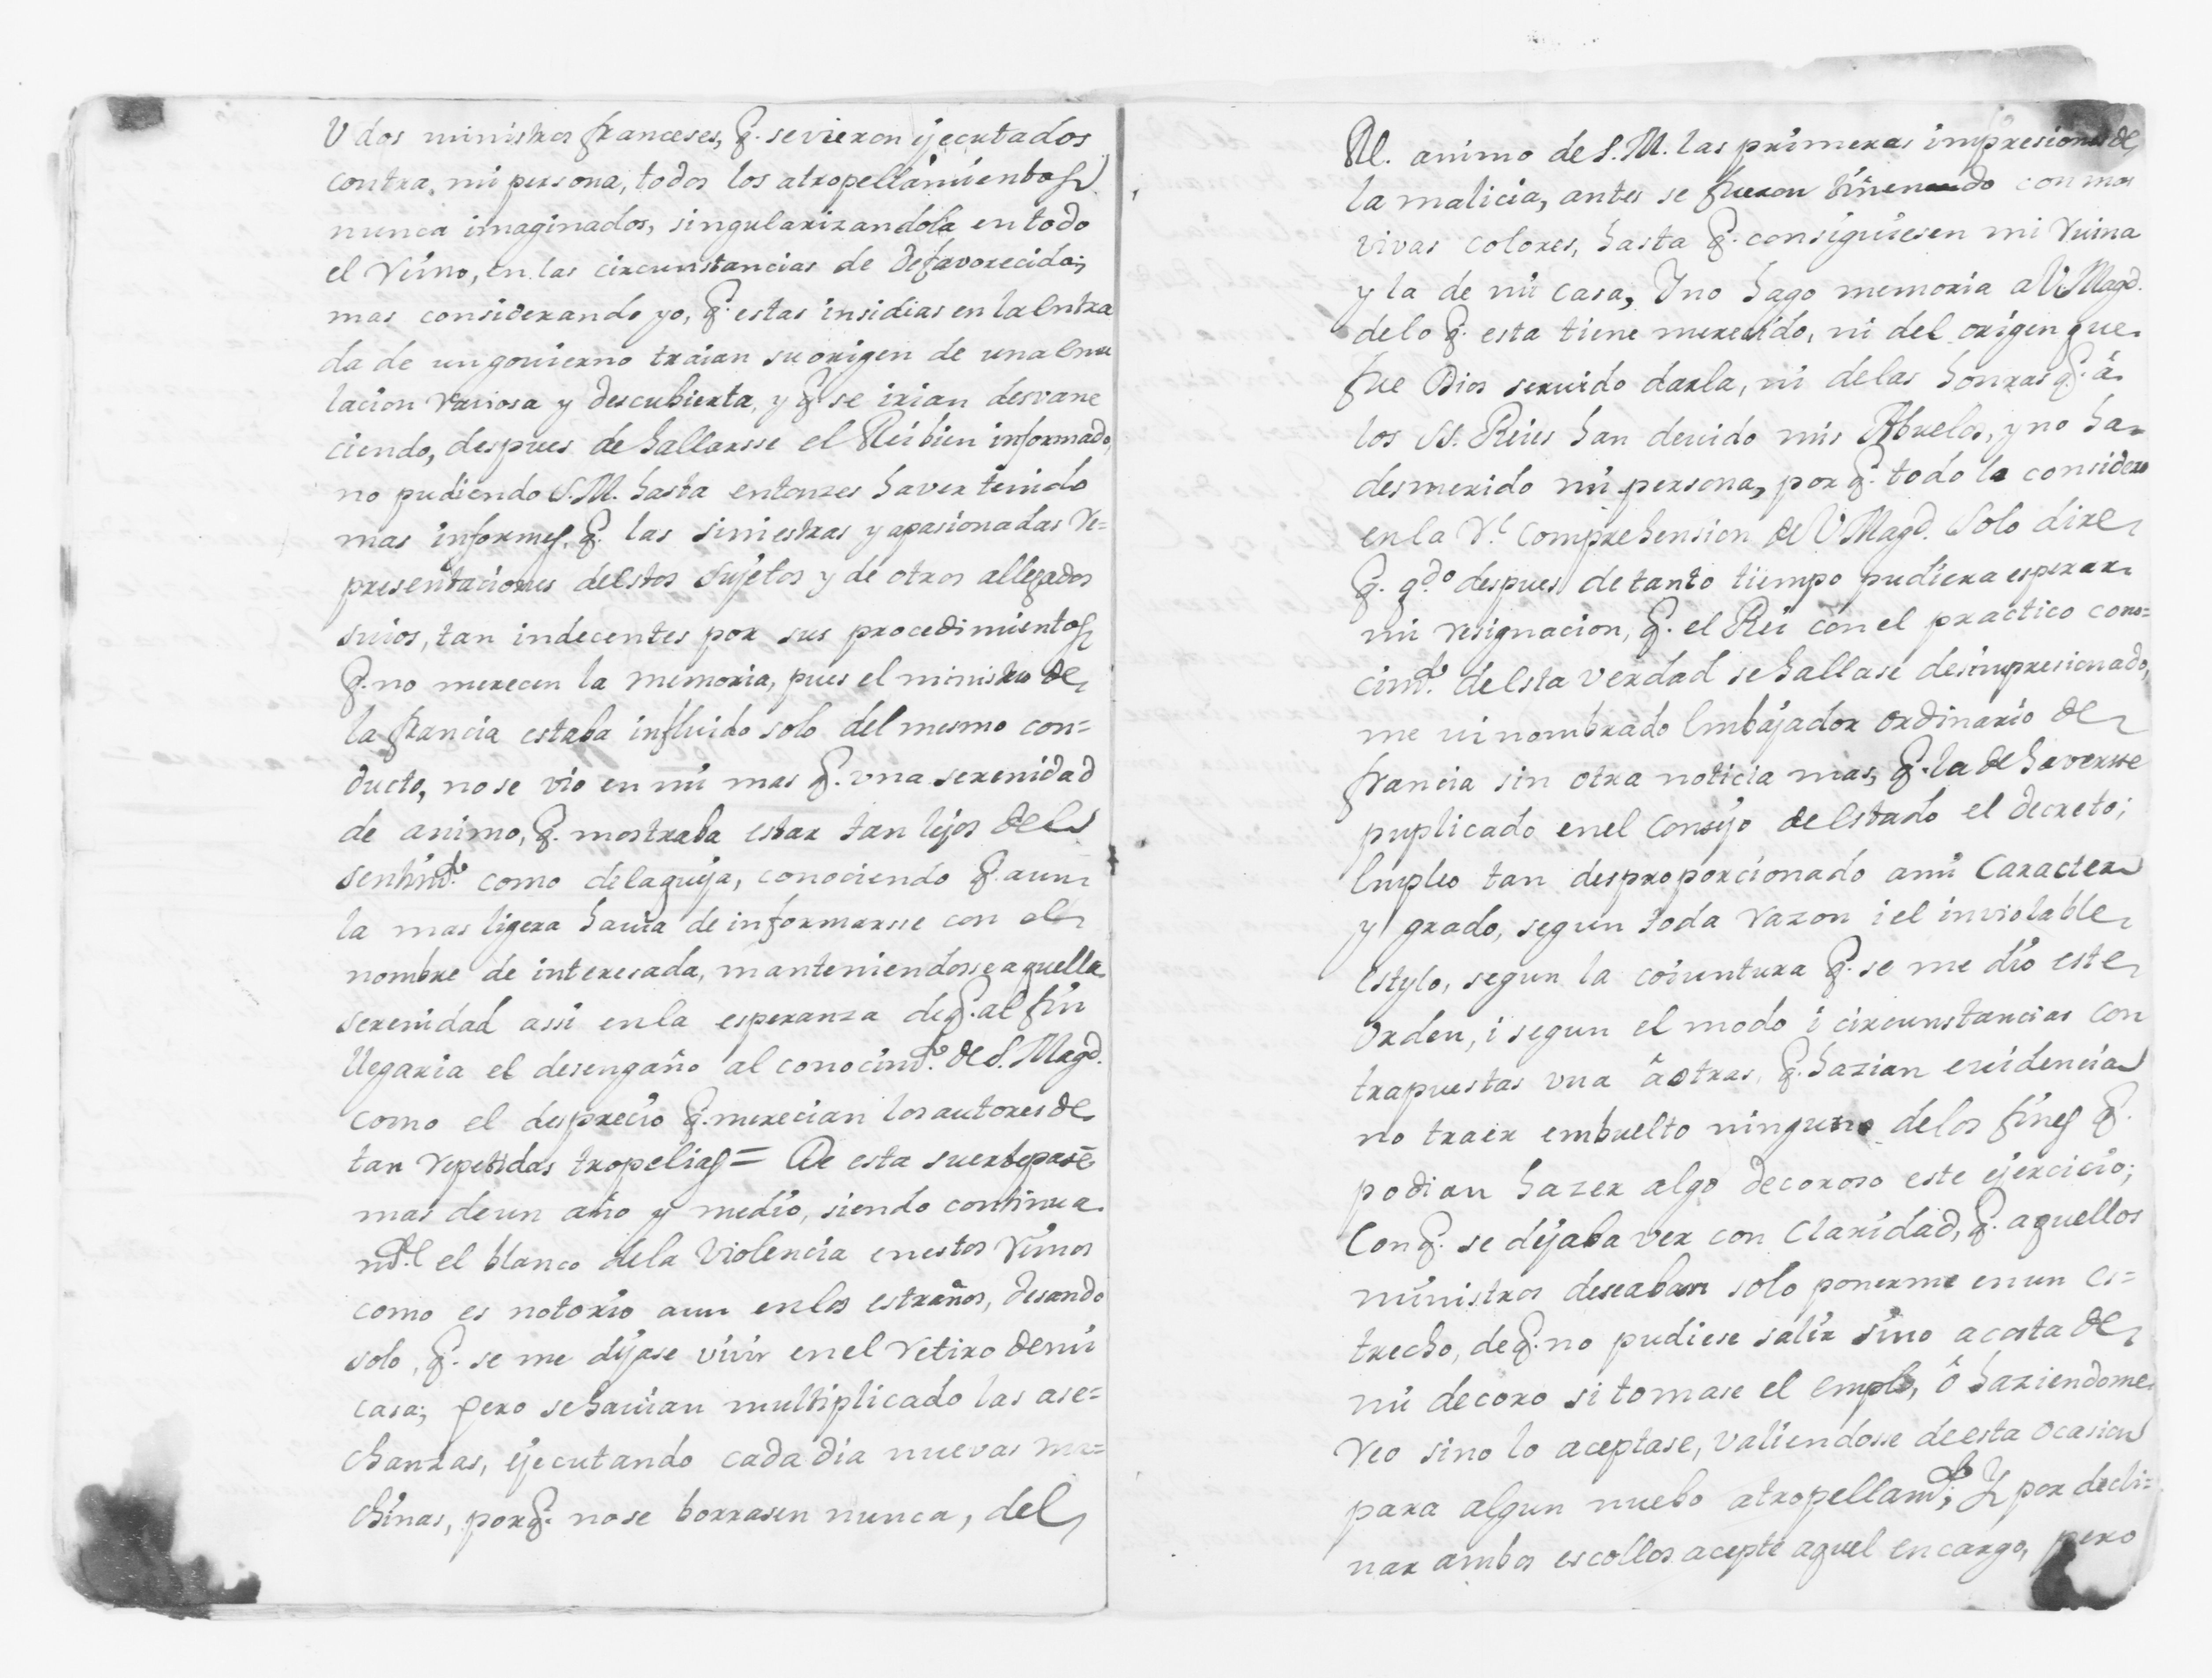 V dos ministros franceses, q. se vieron ejecutados
contra mi persona, todos los atropellamientos
nunca imaginados, singularizandola en todo
el Reino, en las circunstancias de desfavorecida;
mas considerando yo, q. estas insidias en la entra
da de un govierno traian su origen de una emu
lacion raviosa y descubierta, y q. se irian desvane
ciendo, despues de hallarsse el Rei bien informado,
no pudiendo S.M. hasta entonzes haver tenido
mas informes, q. las siniestras y apasionadas re=
presentaciones de estos sujetos y de otros allegados
suios, tan indecentes por sus procedimientos
q. no merecen la memoria, pues el ministro de
la francia estaba influido solo del mesmo con=
ducto, no se vio en mi mas q. vna serenidad
de animo, q. mostraba estar tan lejos del
sentimto. como de la queja, conociendo q. aun
la mas ligera havia de informarsse con el
nombre de interesada, manteniendosse aquella
serenidad assi en la esperanza de q. al fin
llegaria el desengaño al conocimto. de S. Magd.
como el desprecio q. merecian los autores de
tan repetidas tropelias = De esta suerte pasè
mas de un año y medio, siendo continua
mte. el blanco de la violencia en estos reinos
como es notorio aun en los estraños, desando
solo, q. se me dejase vivir en el retiro de mi
casa; pero se havian multiplicado las ase=
chanzas, ejecutando cada dia nuevas ma=
chinas, porq. no se borrasen nunca, del
Rl. animo de S.M. las primeras impresiones de
la malicia, antes se fueron tiñendo con mas
vivas colores, hasta q. consiguiesen mi ruina
y la de mi casa, I no hago memoria a V Magd.
de lo q. esta tiene merecido, ni del origen que
fue Dios servido darla, ni de las honras q. à
los SS. Reies han devido mis Abuelos, y no ha
desmerido mi persona, por q. todo lo considero
en la Rl. comprehension de V Magd. Solo dire
q. qdo. despues de tanto tiempo pudiera esperar
mi resignacion, q. el Rei con el practico cono=
cimto. de esta verdad se hallase desimpresionado,
me vi nombrado Embajador ordinario de
francia sin otra noticia mas, q. la de haversse
puplicado en el consejo de Estado el decreto;
Empleo tan desproporcionado a mi caracter
y grado, segun toda razon i el inviolable
estylo, segun la coiuntura q. se me dio este
orden, i segun el modo i circunstancias con
trapuestas vna â otras, q. hazian evidencia
no traer embuelto ninguno de los fines q.
podian hazer algo decoroso este ejercicio;
Con q. se dejaba ver con claridad, q. aquellos
ministros deseaban solo ponerme en un es=
trecho, de q. no pudiese salir sino a costa de
mi decoro si tomase el empleo, ô haziendome
reo sino lo aceptase, valiendosse de esta ocasion
para algun nuebo atropellamto; Y por decli=
nar ambos escollos acepté aquel encargo, pero